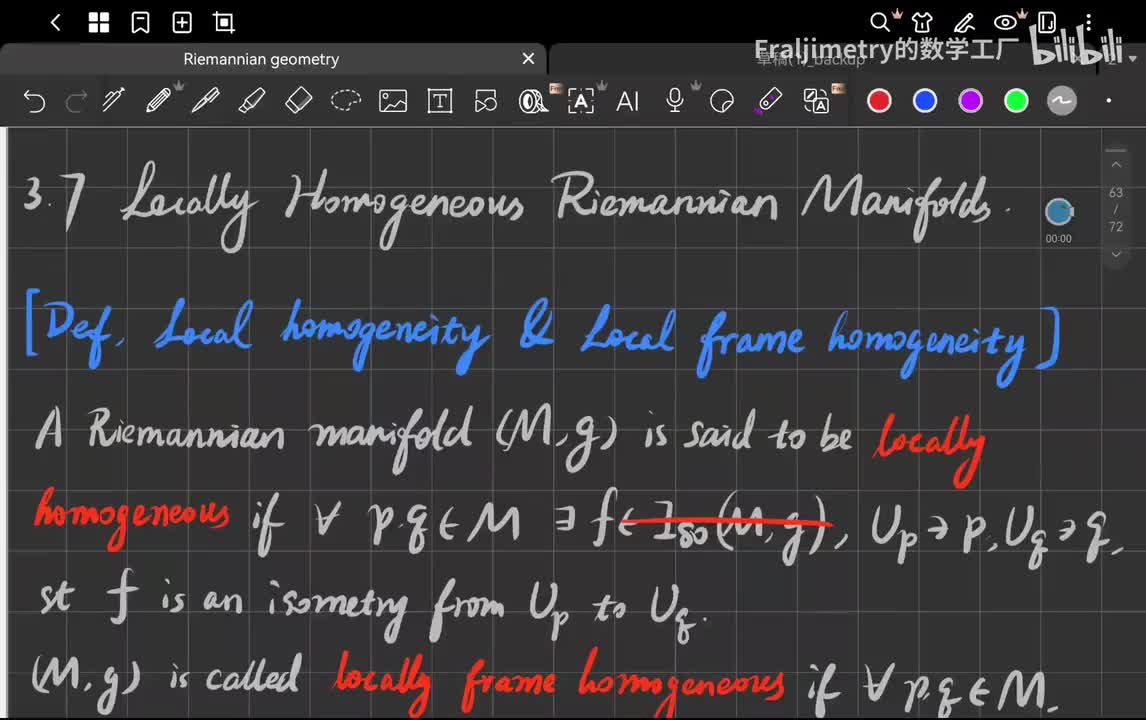 Fraljimetry的数学工厂 bilibili
Riemannian geometry
草稿(1)_backup
3.7 Locally Homogeneous Riemannian Manifolds.
63
/
72
00:00
[Def. Local homogeneity & Local frame homogeneity]
A Riemannian manifold (M,g) is said to be locally
homogeneous if ∀ p,q ∈ M ∃ f ∈ Iso(M,g), U_p ∋ p, U_q ∋ q,
st f is an isometry from U_p to U_q.
(M,g) is called locally frame homogeneous if ∀ p,q ∈ M,